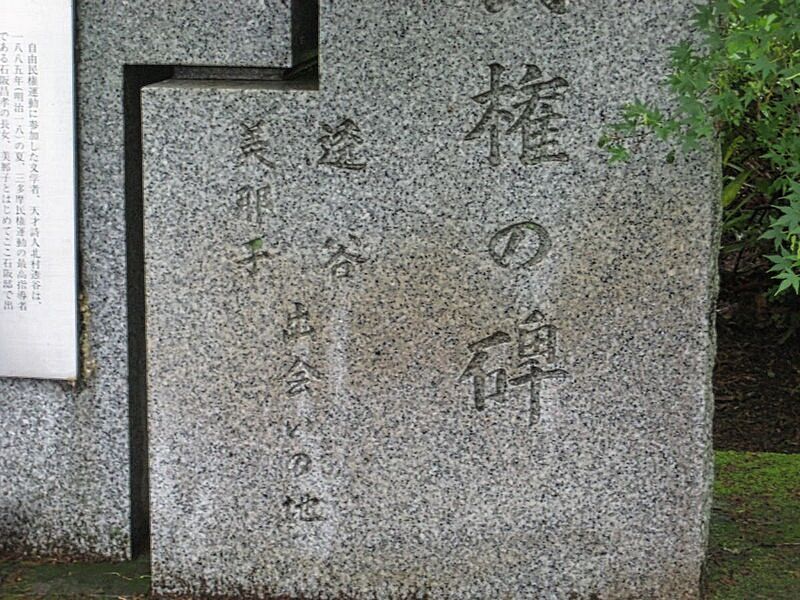 権の碑
透谷
美那子
出会いの地
自由民権運動に参加した文学者、天才詩人北村透谷は、
一八八五年(明治一八)の夏、三多摩民権運動の最高指導者
である石阪昌孝の長女、美那子とはじめてここ石阪邸で出